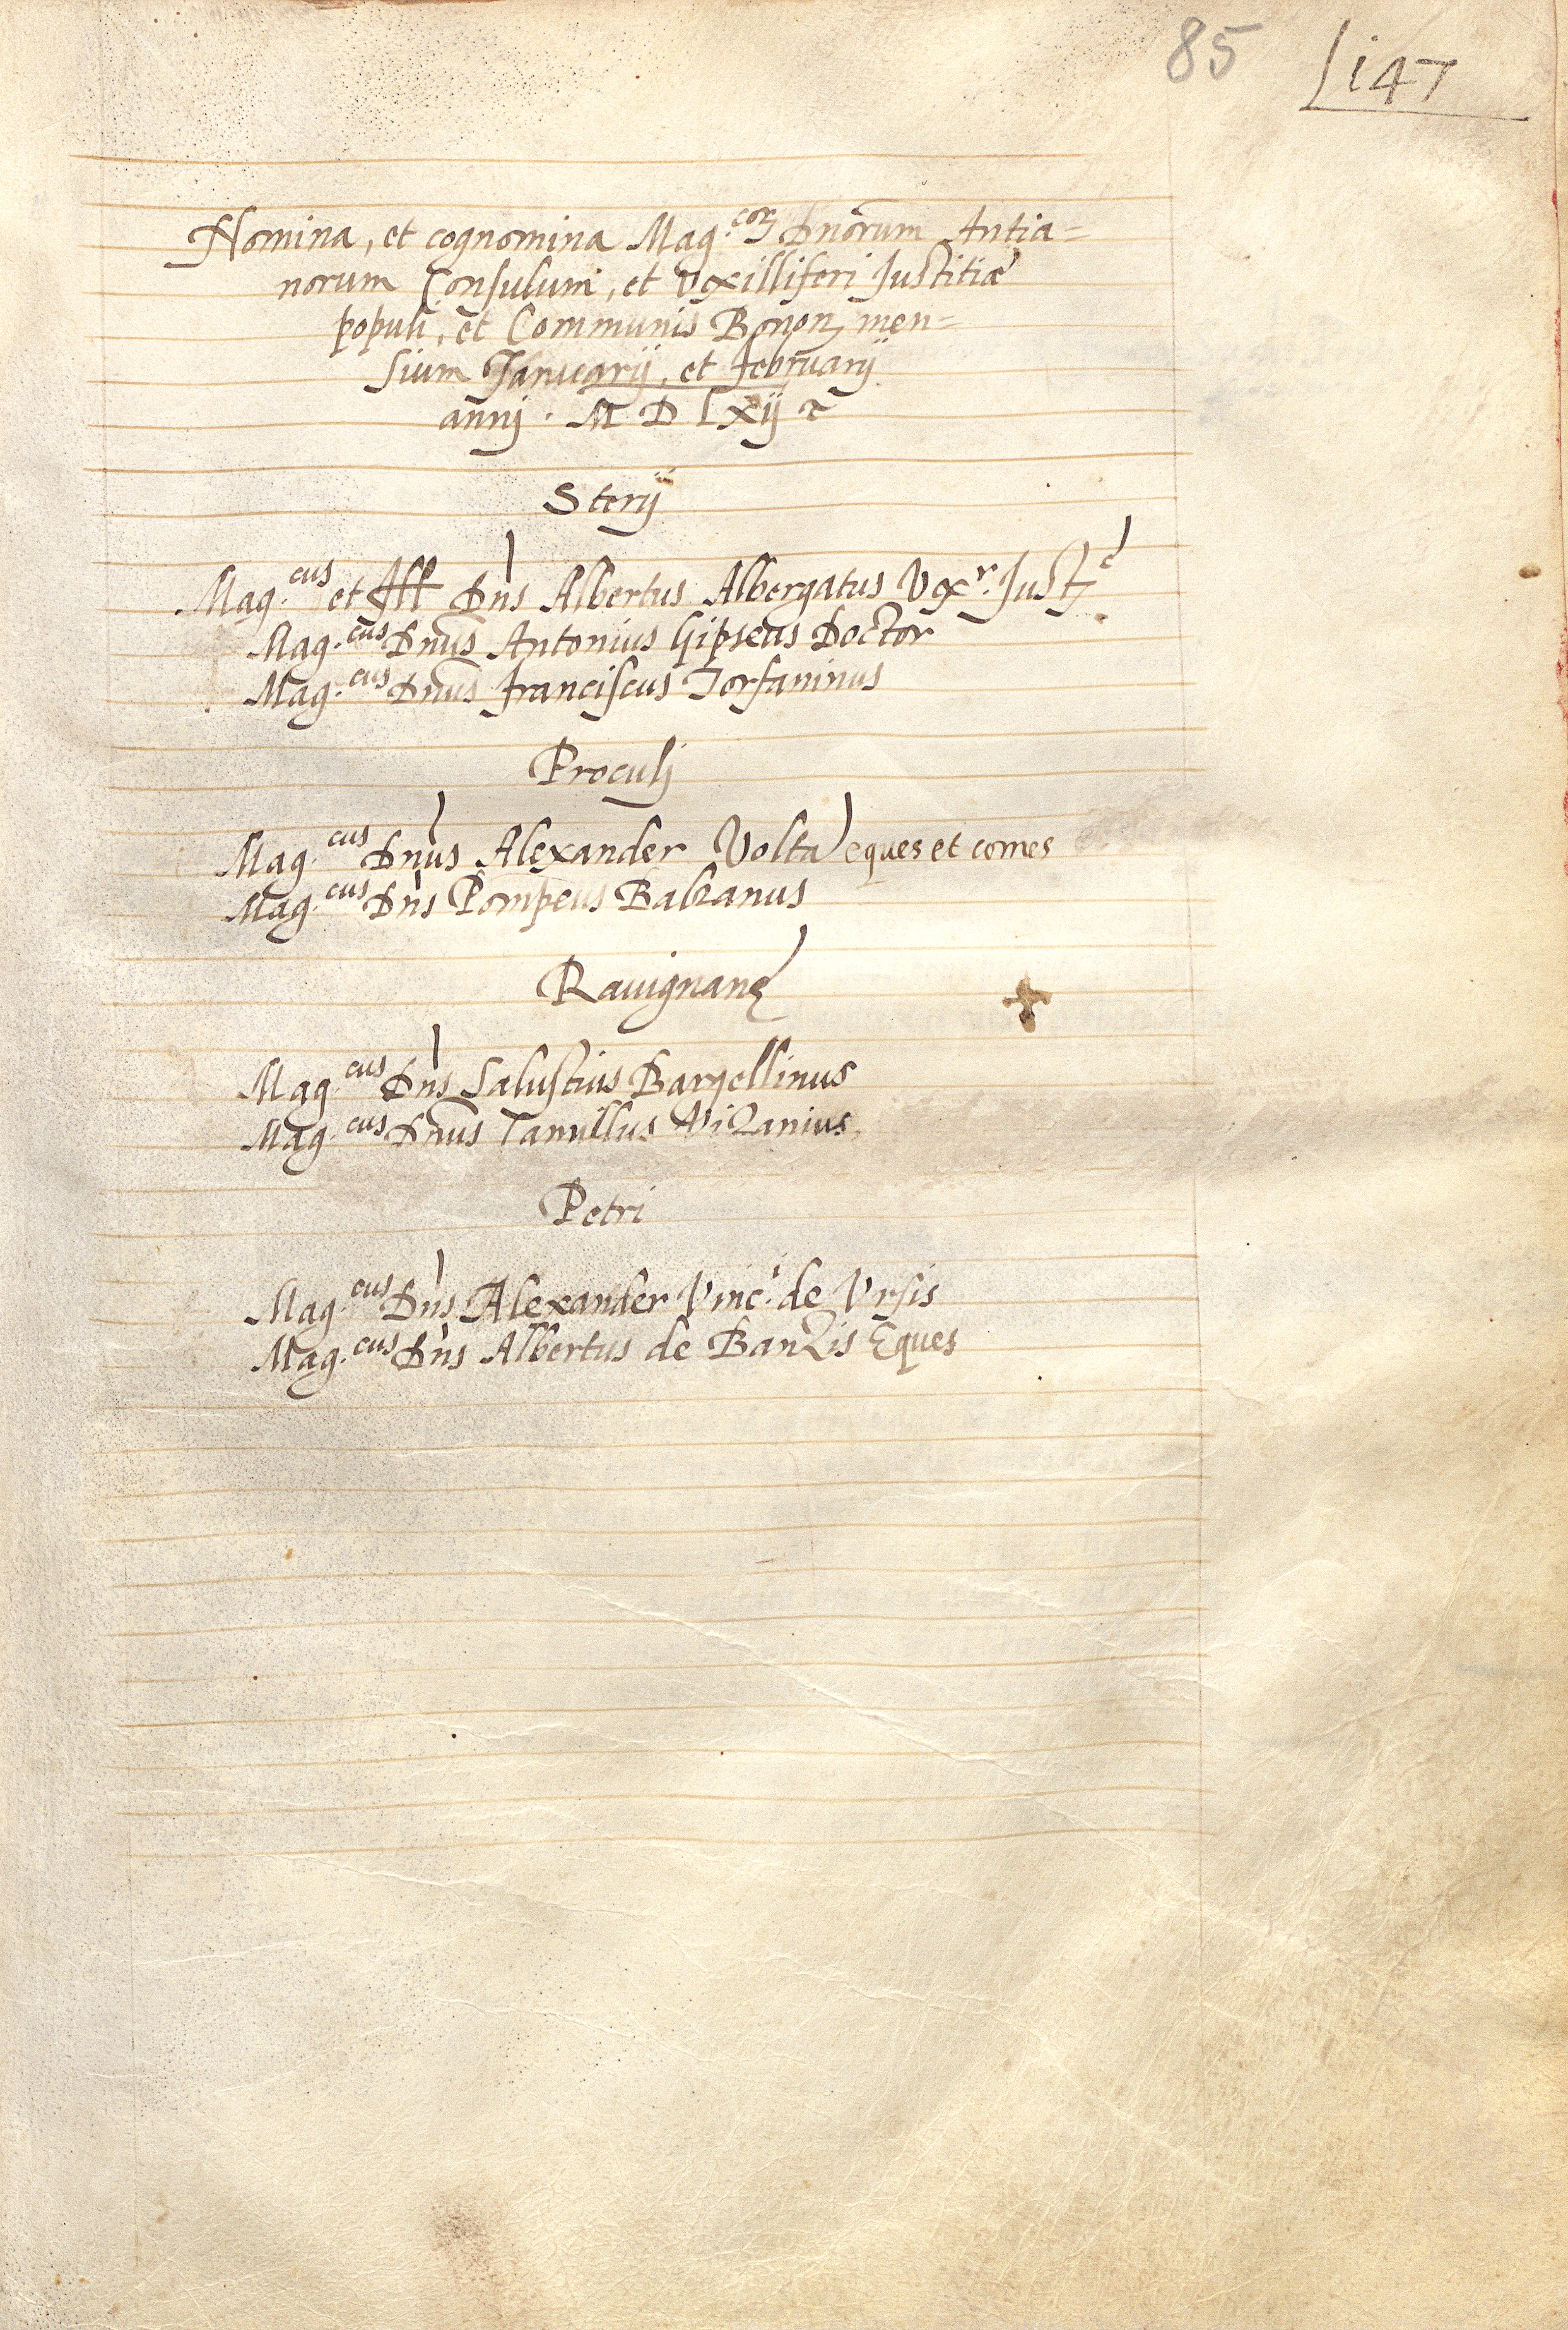 85 147
Nomina, et cognomina Mag.cor Dnorum Antia=
norum Consulum, et Vexilliferi Justitiæ
populi, et Communis Bonon men=
sium Januarij, et Februarij
annj . M D Lxij
Sterij
Mag.cus et Ill Dns Albertus Albergatus Vexr. Just.e
Mag.cus Dnus Antonius Gipseus Doctor
Mag.cus Dnus Franciscus Torfaninus
Proculj
Mag.cus Dnus Alexander Volta eques et comes
Mag.cus Dns Pompeus Balzanus
Rauignanę
Mag.cus Dns Salustius Bargellinus
Mag.cus Dnus Camillus Vizanius
Petri
Mag.cus Dns Alexander Vinc.i de Vrsis
Mag.cus Dns Albertus de Banzis Eques